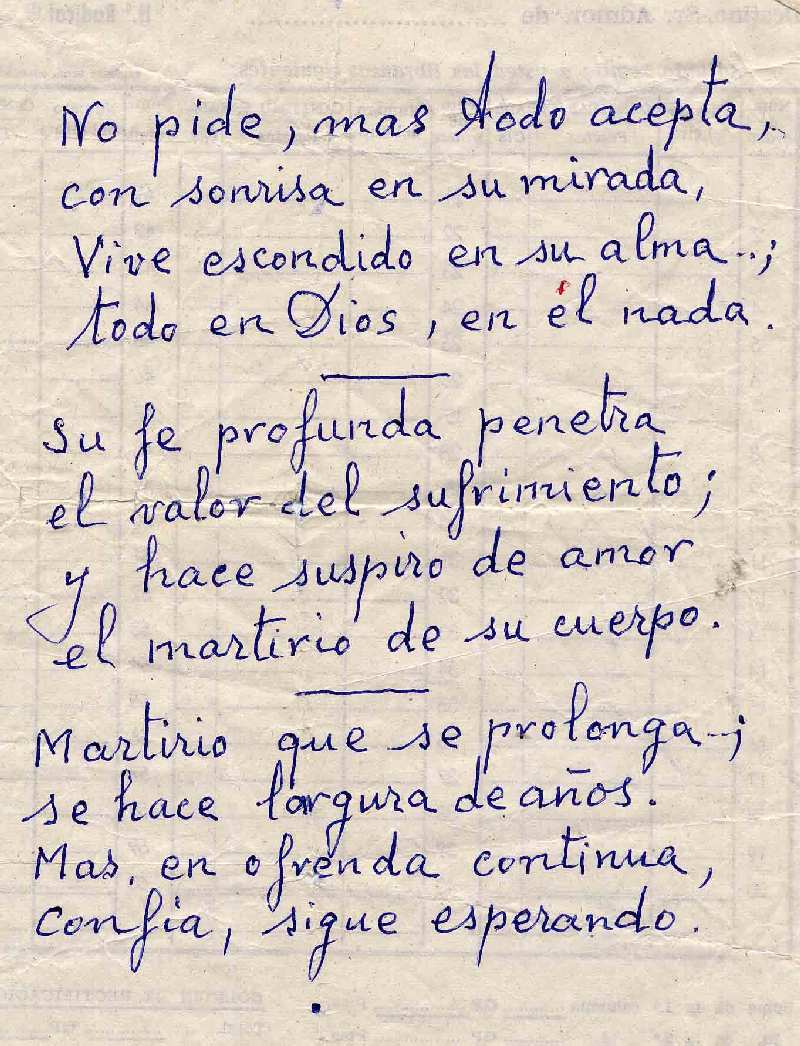 No pide, mas todo acepta,
con sonrisa en su mirada,
Vive escondido en su alma..;
todo en Dios, en él nada.
Su fe profunda penetra
el valor del sufrimiento;
y hace suspiro de amor
el martirio de su cuerpo.
Martirio que se prolonga..;
se hace largura de años.
Mas, en ofrenda continua,
Confia, sigue esperando.